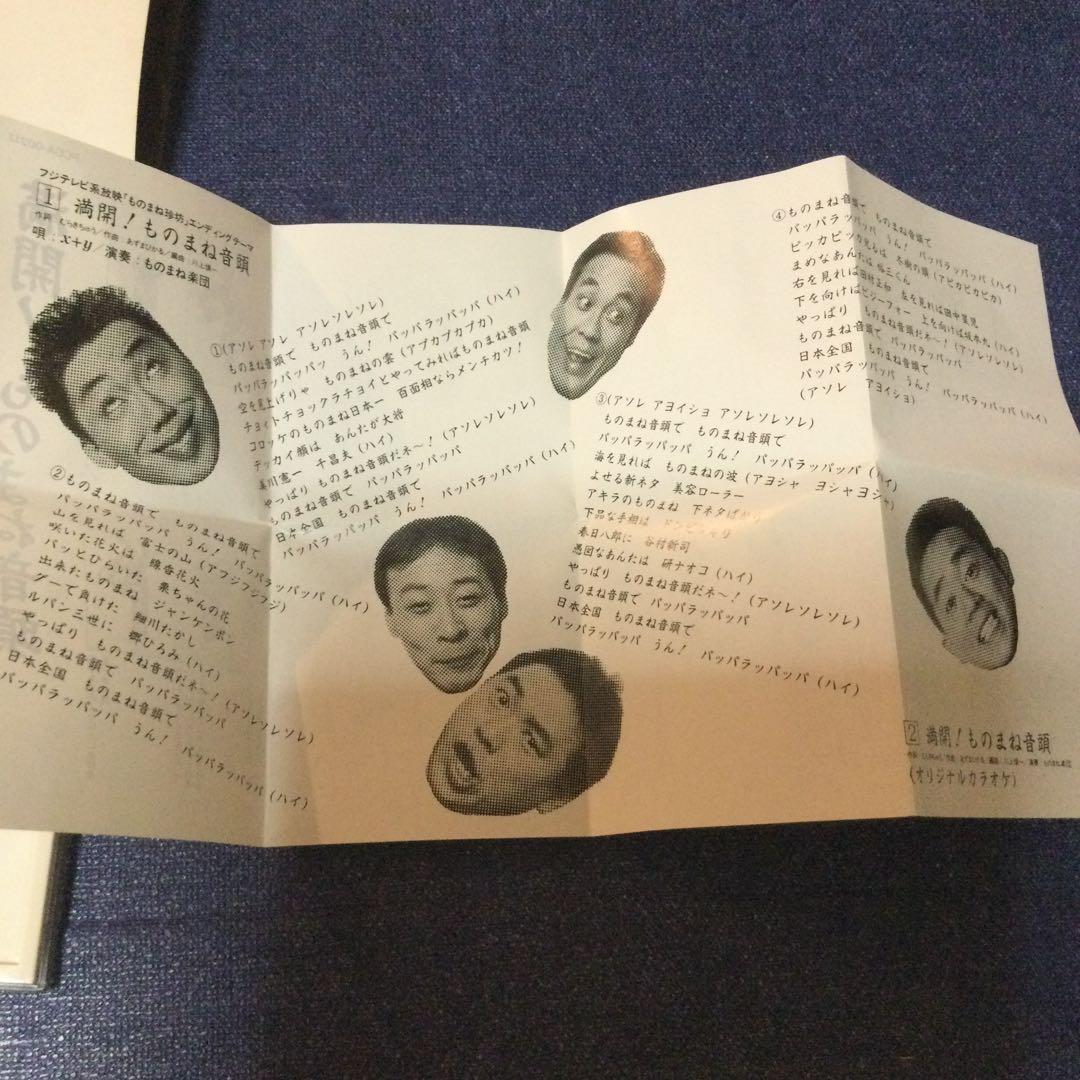 フジテレビ系放映「ものまね珍坊」エンディングテーマ
1 満開！ものまね音頭
作詞 むらきちゅう／作曲 あずまひかる／編曲 川上慎一
唄：x+y 演奏：ものまね楽団
①(アソレ アソレ アソレソレソレ)
ものまね音頭で ものまね音頭で
パッパラッパッパッ うん！ パッパラッパッパ (ハイ)
空を見上げりゃ ものまねの雲 (アプカプカプカ)
チョイトチョックラチョイとやってみればものまね音頭
コロッケのものまね日本一 百面相ならメンチカツ！
デッカイ顔は あんたが大将
美川憲一 千昌夫 (ハイ)
やっぱり ものまね音頭だネ〜！(アソレソレソレ)
ものまね音頭で パッパラッパッパ
日本全国 ものまね音頭で
パッパラッパッパ うん！ パッパラッパッパ (ハイ)
②ものまね音頭で ものまね音頭で
パッパラッパッパ うん！ パッパラッパッパ (ハイ)
山を見れば 富士の山 (アフジフジフジ)
咲いた花火は 線香花火
パッとひらいた 栗ちゃんの花
出来たものまね ジャンケンポン
グーで負けた 細川たかし
ルパン三世に 郷ひろみ (ハイ)
やっぱり ものまね音頭だネ〜！(アソレソレソレ)
ものまね音頭で パッパラッパッパ
日本全国 ものまね音頭で
パッパラッパッパ うん！ パッパラッパッパ (ハイ)
③(アソレ アヨイショ アソレソレソレ)
ものまね音頭で ものまね音頭で
パッパラッパッパ うん！ パッパラッパッパ (ハイ)
海を見れば ものまねの波 (アヨシャ ヨシャヨシャ)
よせる新ネタ 美容ローラー
アキラのものまね 下ネタばかり
下品な手相は ドンピシャリ
春日八郎に 谷村新司
愚図なあんたは 研ナオコ (ハイ)
やっぱり ものまね音頭だネ〜！(アソレソレソレ)
ものまね音頭で パッパラッパッパ
日本全国 ものまね音頭で
パッパラッパッパ うん！ パッパラッパッパ (ハイ)
④ものまね音頭で ものまね音頭で
パッパラッパッパ うん！ パッパラッパッパ (ハイ)
ピッカピッカ光るは 冬樹の頭 (アピカピカピカ)
まめなあんたは 裕三くん
右を見れば田村正和 左を見れば田中星児
下を向けばビジーフォー 上を向けば坂本九 (ハイ)
やっぱり ものまね音頭だネ〜！(アソレソレソレ)
ものまね音頭で パッパラッパッパ
日本全国 ものまね音頭で
パッパラッパッパ うん！ パッパラッパッパ (ハイ)
(アソレ アヨイショ)
2 満開！ものまね音頭
(オリジナルカラオケ)